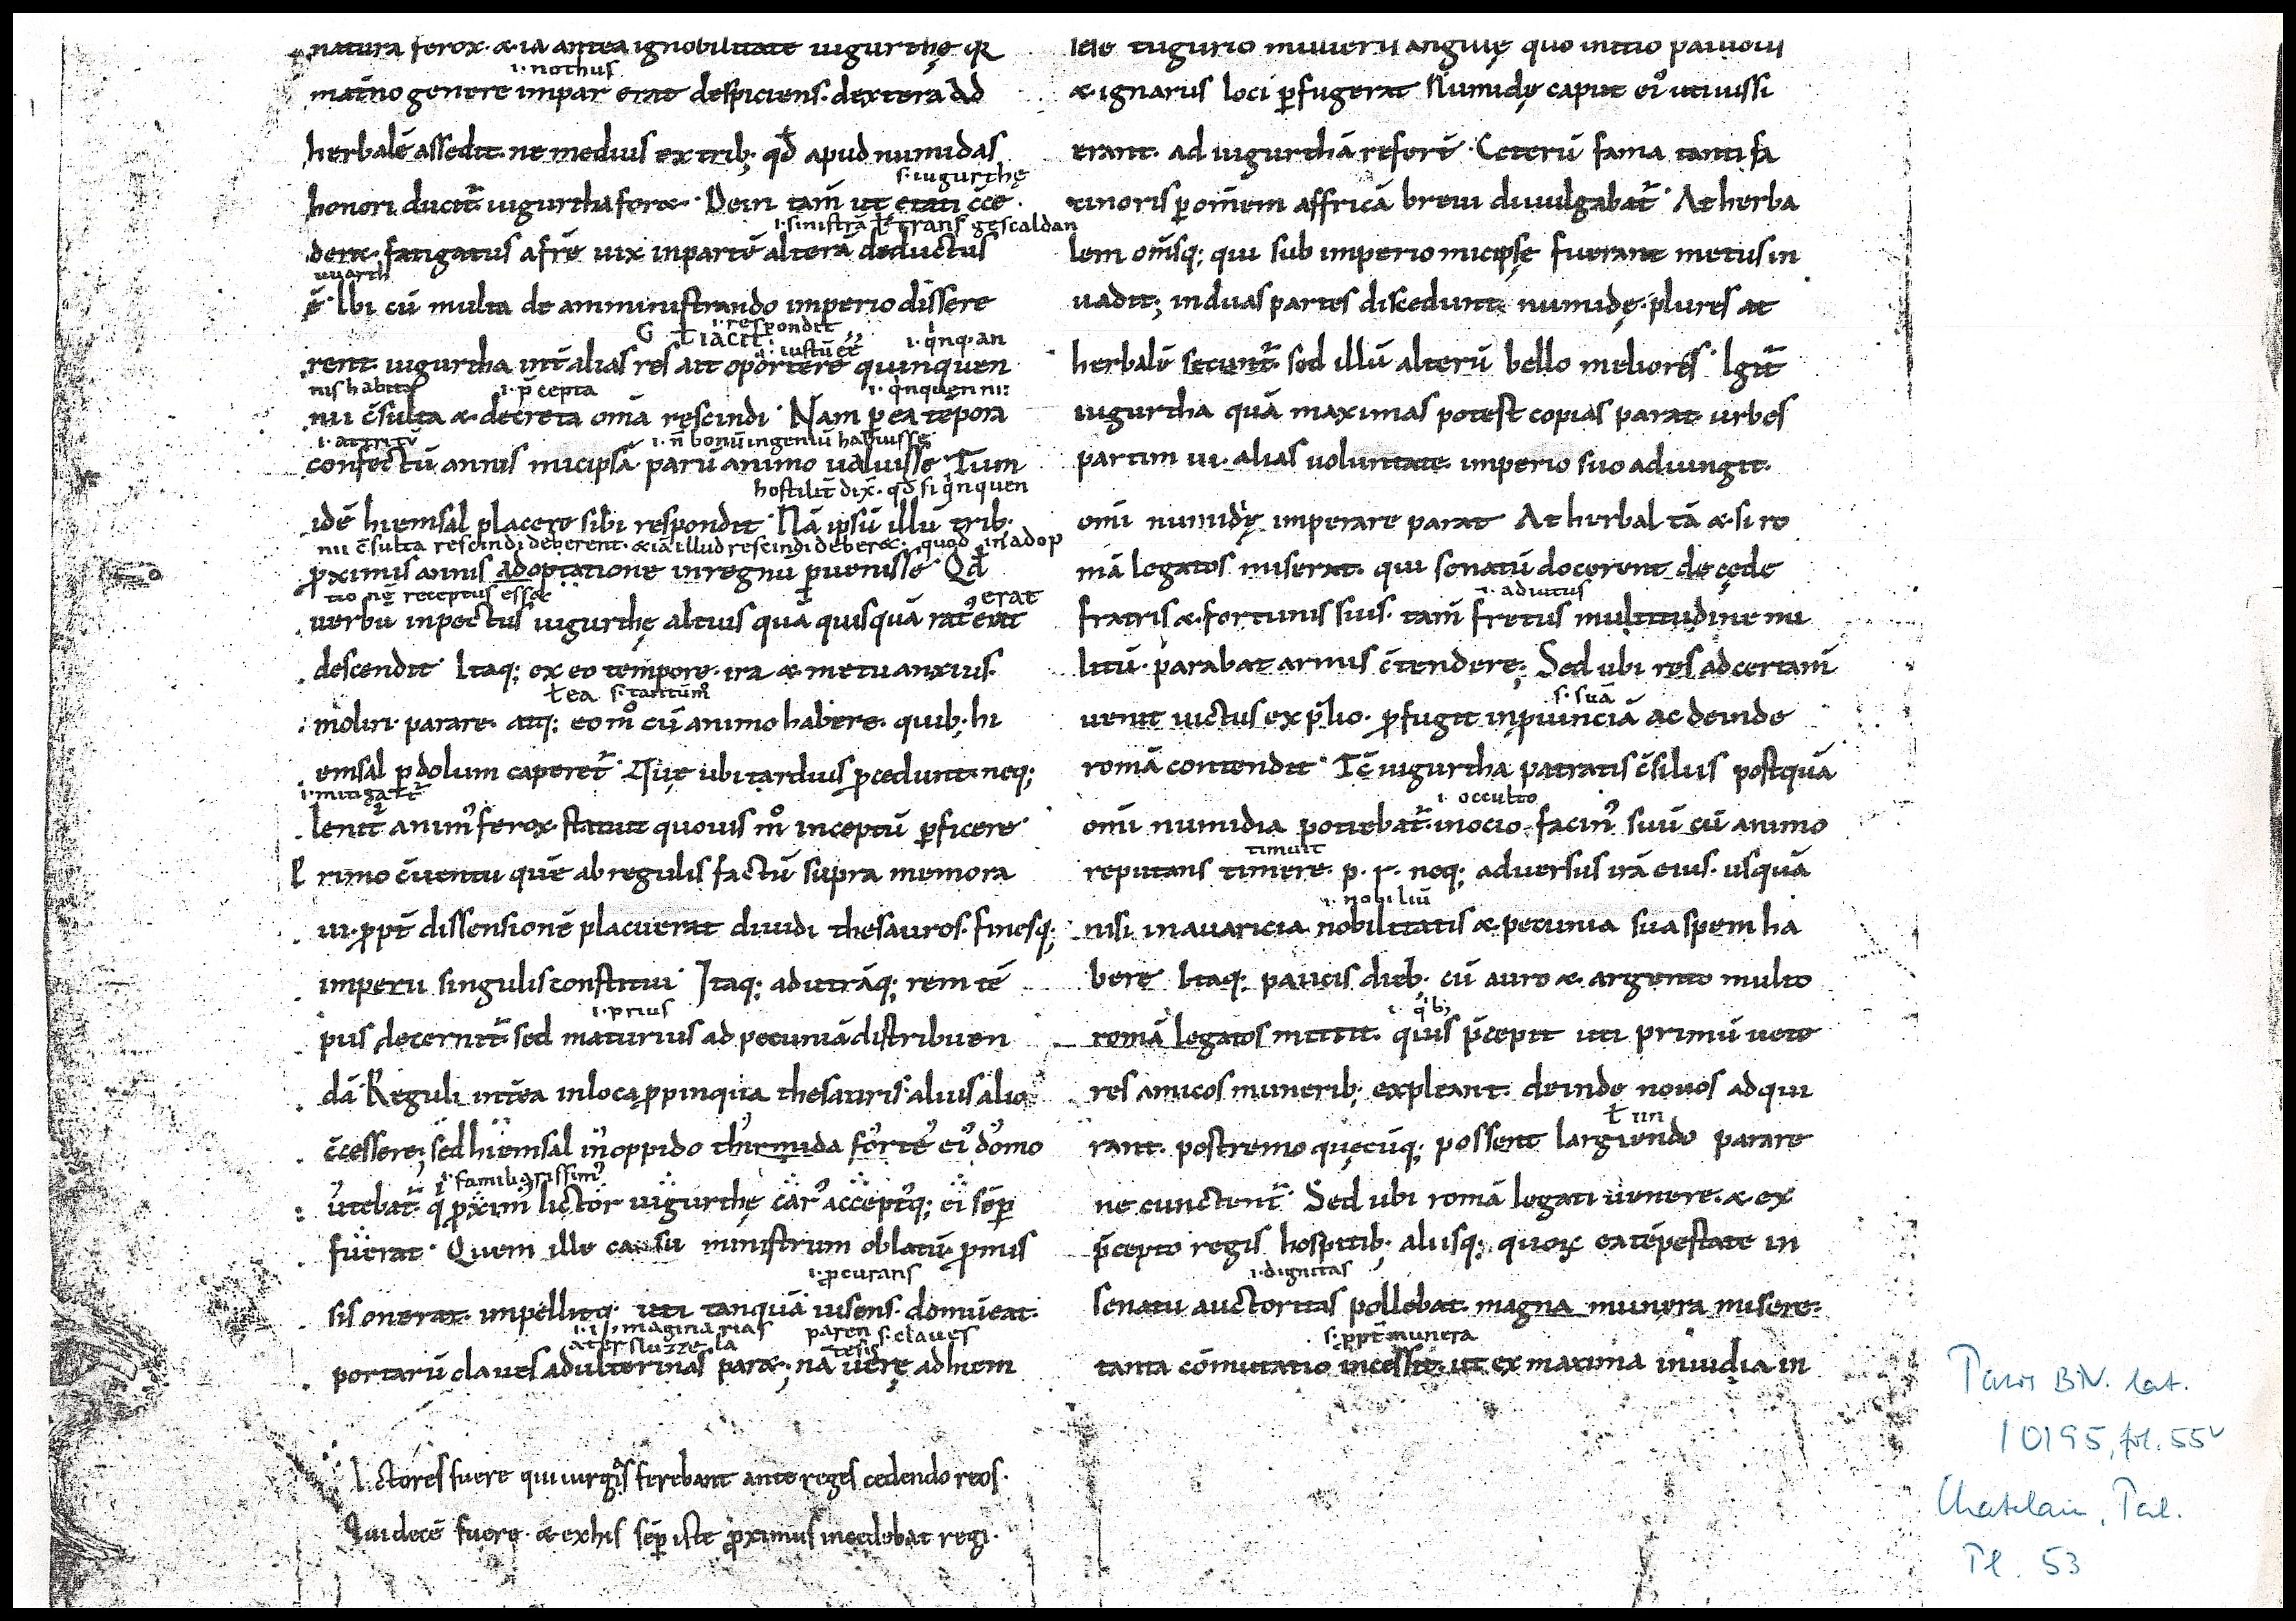 natura ferox· & iā antea ignobilitate iugurthę q̄
i· nothus
mat̄no genere impar erat despiciens· dextera ad
herbalē assedit· ne medius ex trib; qđ apud numidas
s· iugurthę
honori ducit̄ iugurtha foret· Dein tam̄ ut etati c̄ce
i· sinistrā ł trans gescaldan
deret· fatigatus a fr̄e uix in partē alterā deductus
uuarth
ē· Ibi cū multa de amministrando imperio dissere
i· respondit
G ł iacit· i· iustū eē i· q̍nq· an
rent· iugurtha int̄ alias res ait oportere quinquen
nis habitos i· p̄cepta i· q̍nquennii
nii c̄sulta & decreta om̄a rescindi· Nam p̱ ea tēpora
i· attritū i· n̄ bonū ingeniū habuisse
confectū annis micipsā· parū animo ualuisse· Tum
hostilit̄ dix̄· qđ si q̍nquen
idē hiemsal placere sibi respondit· Nā ipsū illū trib·
nii c̄sulta rescindi deberent· & iā illud rescindi deberet· quod in adop
ꝓximis annis adoptatione in regnū puenisse· Qđ
tionē receptus esset erat
uerbū in pectus iugurthę altius quā quisquā rat᾿ erat
descendit· Itaq; ex eo tempore· ira & metu anxius·
ł ea s· tantūm̊
moliri· parare· atq; eo m̊ cū animo habere· quib; hi
emsal p dolum caperet̄· Quę ubi tardius ꝓcedunt· neq;
i· mitigatt̄
lenit̄ anim᾿ ferox· statuit quouis m̊ inceptū pficere·
P rimo c̄uentu quē ab regulis factū supra memora
ui· ꝓpt̄ dissensionē placuerat diuidi thesauros· finesq;
imperii singulis constitui· Itaq; ad utrāq; rem tē
i· prius
pus decernit̄· sed maturius ad pecuniā distribuen
dā· Reguli int̄ea in loca ꝓpinqua thesauris· alius alio
c̄cessere; sed hiemsal in oppido thirmida forte ei᾿ domo
i· familiarissim᾿
utebat̄· q̍ ꝓxim᾿ lictor iugurthę car᾿ accept᾿q; ei sēp̱
fuerat· Quem ille casu ministrum oblatū· ꝓmis
i· ꝓcurans
sis onerat· impellitq· uti tanquā uisens· domū eat·
i· imaginarias paren s· claues
atersluzzela tesis
portarū claues adulterinas paret; nā uerę ad hiem
Lictores fuere qui uirgas ferebant ante reges cedendo reos·
Qui decē fuere· & ex his sēp̱ iste ꝓximus incedebat regi·
& ignarus loci pfugerat Numidę caput ei᾿ uti iussi
erant· ad iugurthā referē· Ceterū fama tanti fa
cinoris p om̄em affricā breui diuulgabat̄· At herba
lem om̄sq; qui sub imperio micipsę fuerant metus in
uadit; in duas partes discedunt numidę· plures at
herbalē secunt̄· sed illū alterū bello meliores· Igit̄
iugurtha quā maximas potest copias parat· urbes
partim ui· alias uoluntate· imperio suo adiungit·
omi numidię imperare parat At herbal tā & si ro
mā legatos miserat· qui senatū docerent de cęde
i· adiutus
fratris & fortunis suis· tam̄ fretus multitudine mi
litū· parabat armis c̄tendere; Sed ubi res ad certam̄
s· suā
uenit uictus ex p̄lio· ꝓfugit in ꝓuinciā ac deinde
romā contendit· Tc̄ iugurtha patratis c̄siliis postquā
i· occulto
omi numidia potiebat̄· in ocio facin᾿ suū cū animo
timuit
reputans timere· p· r· neq; aduersus irā eius· usquā
i· nobiliū
nisi in auaricia nobilitatis & pecunia sua spem ha
bere· Itaq; paucis dieb· cū auro & argento multo
i· q̍b;
romā legatos mittit· quis p̄cepit uti primū uete
res amicos munerib; expleant· deinde nouos adqui
ł iun
rant· postremo quęcūq; possent largiendo parare
ne cunctent̄· Sed ubi romā legati uenere· & ex
p̄cepto regis hospitib; aliisq; quoꝝ ea tēpestate in
i· dignitas
senatu auctoritas pollebat· magna munera misere·
s· ꝓpt̄ munera
tanta cōmutatio incessit· ut ex maxima inuidia in
Paris BN. lat.
10195, fol. 55v
Chatelain, Pal.
Pl. 53